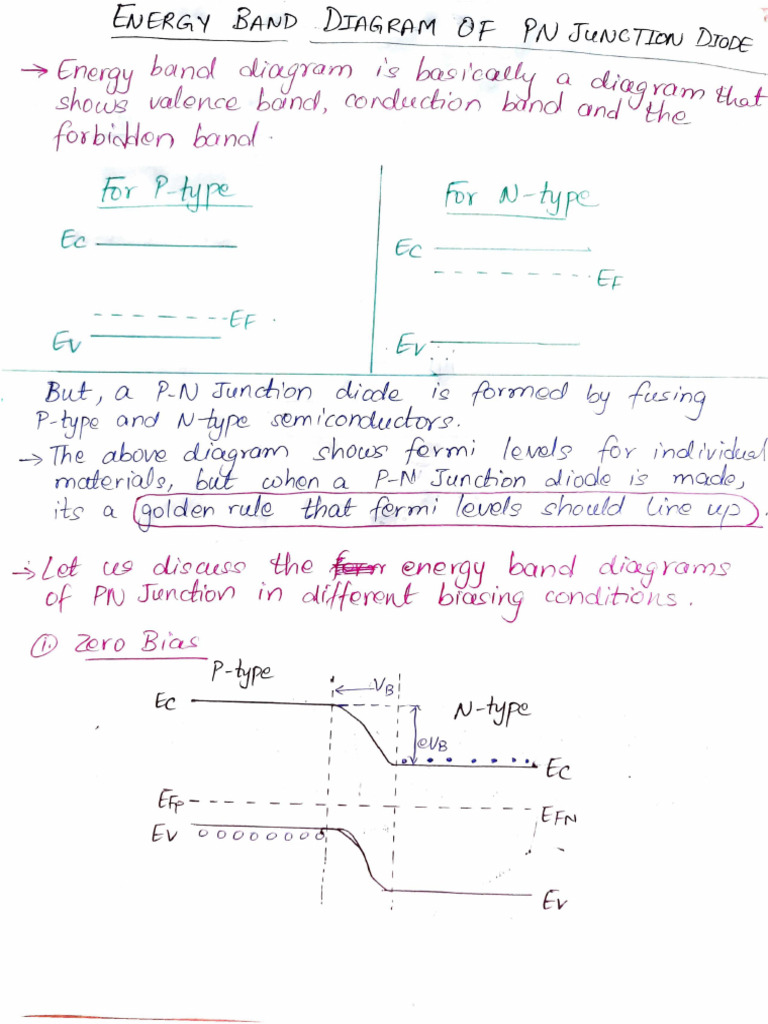 ENERGY BAND DIAGRAM OF PN JUNCTION DIODE
→ Energy band diagram is basically a diagram that
shows valence band, conduction band and the
forbidden band.
For P-type
For N-type
Ec
Ec
EF
EF
Ev
Ev
But, a P-N Junction diode is formed by fusing
P-type and N-type semiconductors.
→ The above diagram shows fermi levels for individual
materials, but when a P-N Junction diode is made,
its a golden rule that fermi levels should line up.
→ Let us discuss the energy band diagrams
of PN Junction in different biasing conditions.
① Zero Bias
P-type
VB
Ec
N-type
eVB
Ec
EFp
EFN
Ev
Ev